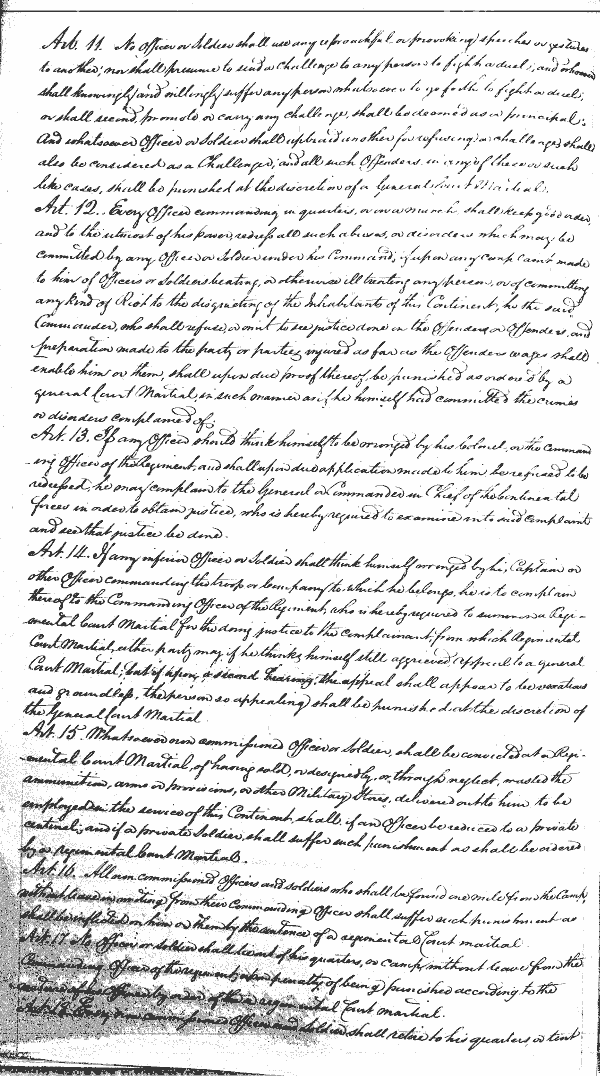 Art. 11. No Officer or Soldier shall use any reproachful or provoking speeches or gestures
to another; nor shall presume to send a Challenge to any person to fight a duel; and whoever
shall knowingly and willingly suffer any person whatsoever to go forth to fight a duel;
or shall second, promote or carry any challenge, shall be deemed as a principal:
And whatsoever Officer or Soldier shall upbraid another for refusing a challenge, shall
also be considered as a Challenger; and all such Offenders, in any of these or such
like cases, shall be punished at the discretion of a General Court Martial.
Art. 12. Every Officer commanding in quarters, or on a march, shall keep good order,
and to the utmost of his power, redress all such abuses, or disorders which may be
committed by any Officer or Soldier under his Command; if upon any complaint made
to him of Officers or Soldiers beating, or otherwise ill treating any person, or of committing
any kind of Riot to the disquieting of the Inhabitants of this Continent; he the said
Commander, who shall refuse or omit to see justice done on the Offender or Offenders, and
preparation made to the party or parties injured as far as the Offenders wages shall
enable him or them, shall upon due proof thereof, be punished as order'd by a
general Court Martial, in such manner as if he himself had committed the crimes
or disorders complained of.
Art. 13. If any Officer should think himself to be wronged by his Colonel, or the command-
-ing Officer of the Regiment, and shall upon due application made to him be refused to be
redressed, he may complain to the General or Commander in Chief of the Continental
forces in order to obtain justice, who is hereby required to examine into said complaint
and see that justice be done.
Art. 14. If any inferior Officer or Soldier shall think himself wronged by his Captain or
other Officer commanding the troop or Company to which he belongs, he is to complain
thereof to the Commanding Officer of the Regiment, who is hereby required to summon a Regi-
-mental Court Martial for the doing justice to the complainant, from which Regimental
Court Martial, either party may, if he thinks himself still aggrieved appeal to a general
Court Martial; but if upon, a second hearing, the appeal shall appear to be vexatious
and groundless, the person so appealing shall be punished at the discretion of
the General Court Martial
Art. 15. Whatsoever non commissioned Officer or Soldier, shall be convicted at a Regi-
-mental Court Martial, of having sold, or designedly, or, through neglect, wasted the
ammunition, arms or provisions, or other Military Stores, delivered out to him to be
employed in the service of this Continent, shall, if an Officer be reduced to a private
centinel; and if a private Soldier, shall suffer such punishment as shall be ordered
by a regimental Court Martial.
Art. 16. All non commissioned Officers and soldiers who shall be found one mile from the Camp,
without leave in writing from their commanding Officer shall suffer such punishment as
shall be inflicted on him or them by the sentence of a regimental Court martial.
Art. 17 No Officer or Soldier shall lie out of his quarters, or camp, without leave from the
Commanding Officer of the regiment, upon penalty of being punished according to the
nature of his offence by order of the regimental Court martial.
Art. 18. Every non commissioned Officer and Soldier shall retire to his quarters, or tent